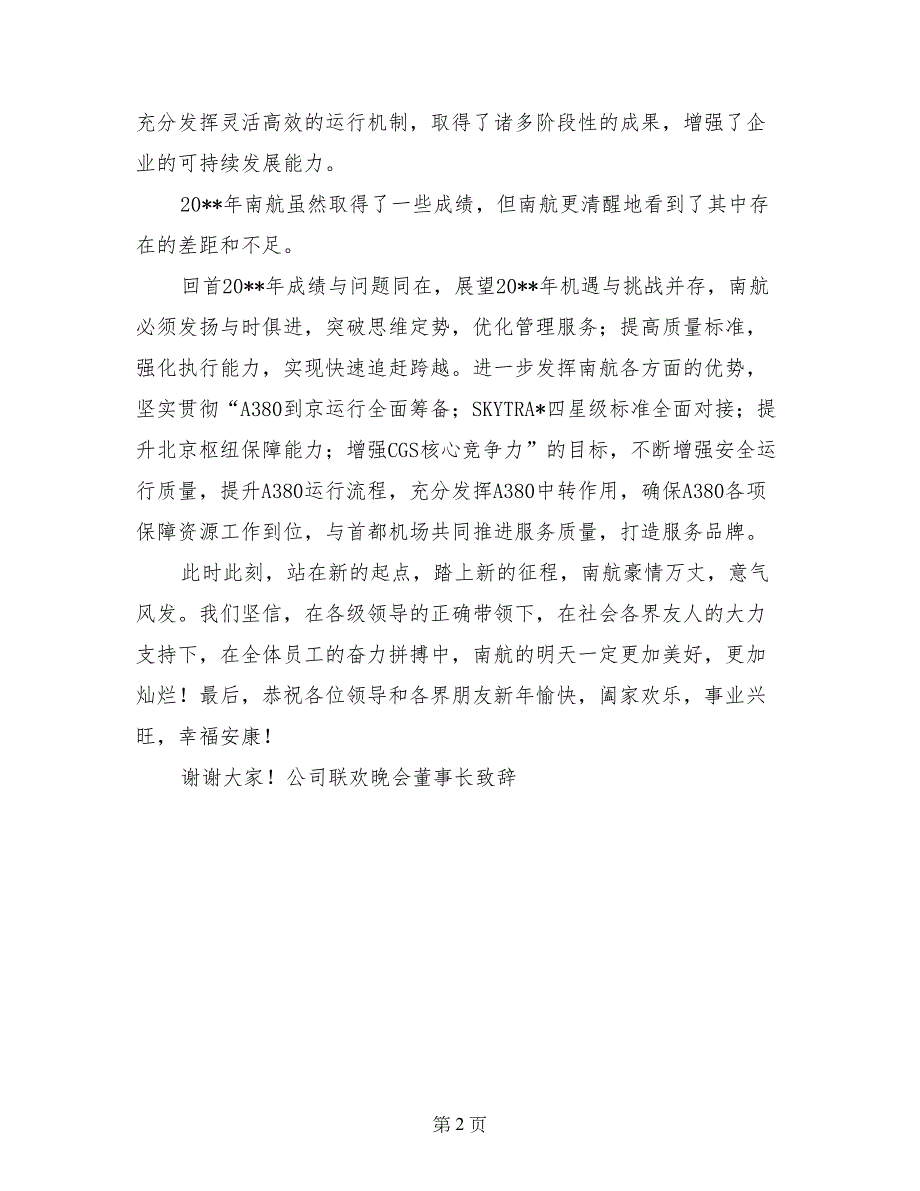 充分发挥灵活高效的运行机制，取得了诸多阶段性的成果，增强了企
业的可持续发展能力。
20**年南航虽然取得了一些成绩，但南航更清醒地看到了其中存
在的差距和不足。
回首20**年成绩与问题同在，展望20**年机遇与挑战并存，南航
必须发扬与时俱进，突破思维定势，优化管理服务；提高质量标准，
强化执行能力，实现快速追赶跨越。进一步发挥南航各方面的优势，
坚实贯彻“A380到京运行全面筹备；SKYTRA*四星级标准全面对接；提
升北京枢纽保障能力；增强CGS核心竞争力”的目标，不断增强安全运
行质量，提升A380运行流程，充分发挥A380中转作用，确保A380各项
保障资源工作到位，与首都机场共同推进服务质量，打造服务品牌。
此时此刻，站在新的起点，踏上新的征程，南航豪情万丈，意气
风发。我们坚信，在各级领导的正确带领下，在社会各界友人的大力
支持下，在全体员工的奋力拼搏中，南航的明天一定更加美好，更加
灿烂！最后，恭祝各位领导和各界朋友新年愉快，阖家欢乐，事业兴
旺，幸福安康！
谢谢大家！公司联欢晚会董事长致辞
第 2 页